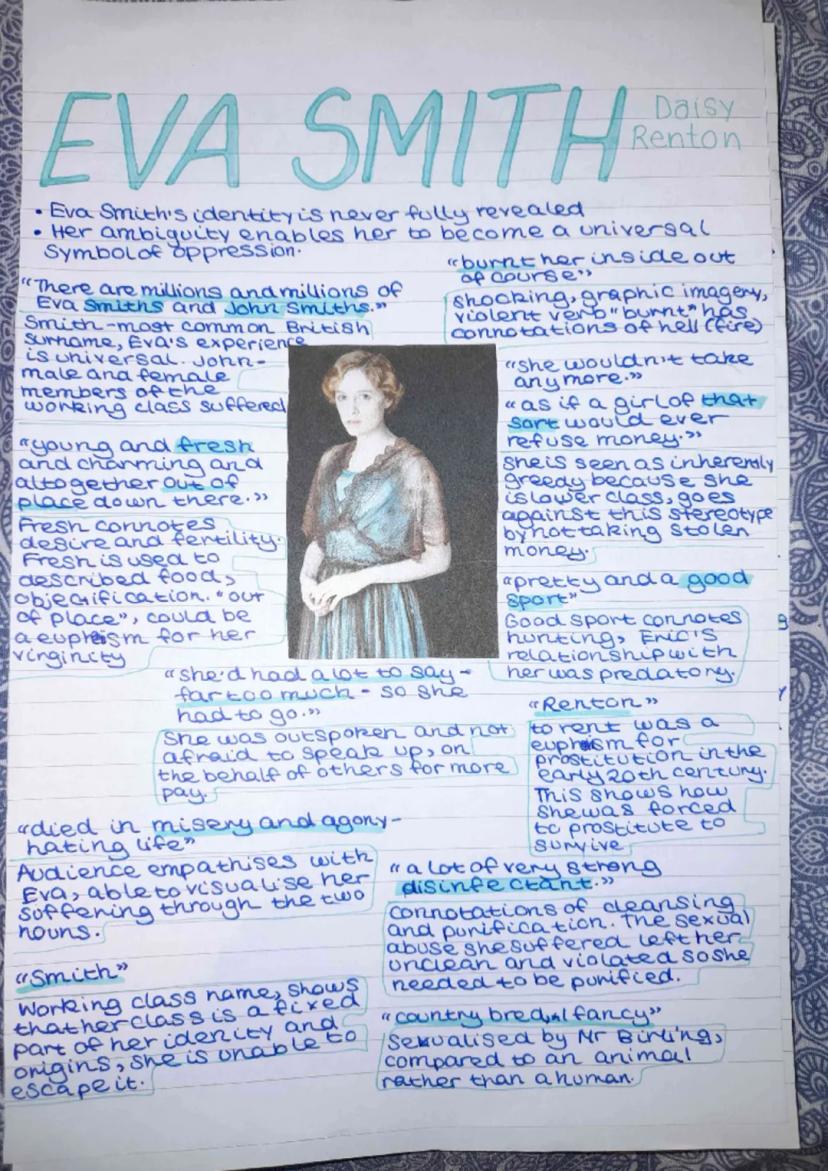 EVA SMITH
Daisy
Renton
• Eva Smith's identity is never fully revealed
• Her ambiguity enables her to become a universal
symbol of oppression.
"There are millions and millions of
Eva Smiths and John Smiths."
Smith - most common British
surname, Eva's experience
is universal. John -
male and female
members of the
working class suffered
"young and fresh
and charming and
altogether out of
place down there."
Fresh connotes
desire and fertility.
Fresh is used to
described food,
objectification. "out
of place", could be
a euphism for her
virginity
"burnt her inside out
of course"
shocking, graphic imagery,
violent verb "burnt" has
connotations of hell (fire)
"she wouldn't take
any more."
"as if a girl of that
sort would ever
refuse money."
she is seen as inherently
greedy because she
is lower class, goes
against this stereotype
by not taking stolen
money.
"pretty and a good
sport"
Good sport connotes
hunting, Eric's
relationship with
her was predatory.
"she'd had a lot to say -
far too much - so she
had to go."
She was outspoken and not
afraid to speak up, on
the behalf of others for more
pay.
"Renton"
to rent was a
euphism for
prostitution in the
early 20th century.
This shows how
she was forced
to prostitute to
survive
"died in misery and agony -
hating life"
Audience empathises with
Eva, able to visualise her
suffering through the two
nouns.
"a lot of very strong
disinfectant."
connotations of cleansing
and purification. The sexual
abuse she suffered left her
unclean and violated so she
needed to be purified.
"Smith"
Working class name, shows
that her class is a fixed
part of her idenity and
origins, she is unable to
escape it.
"country bred, I fancy"
Sexualised by Mr Birling,
compared to an animal
rather than a human.